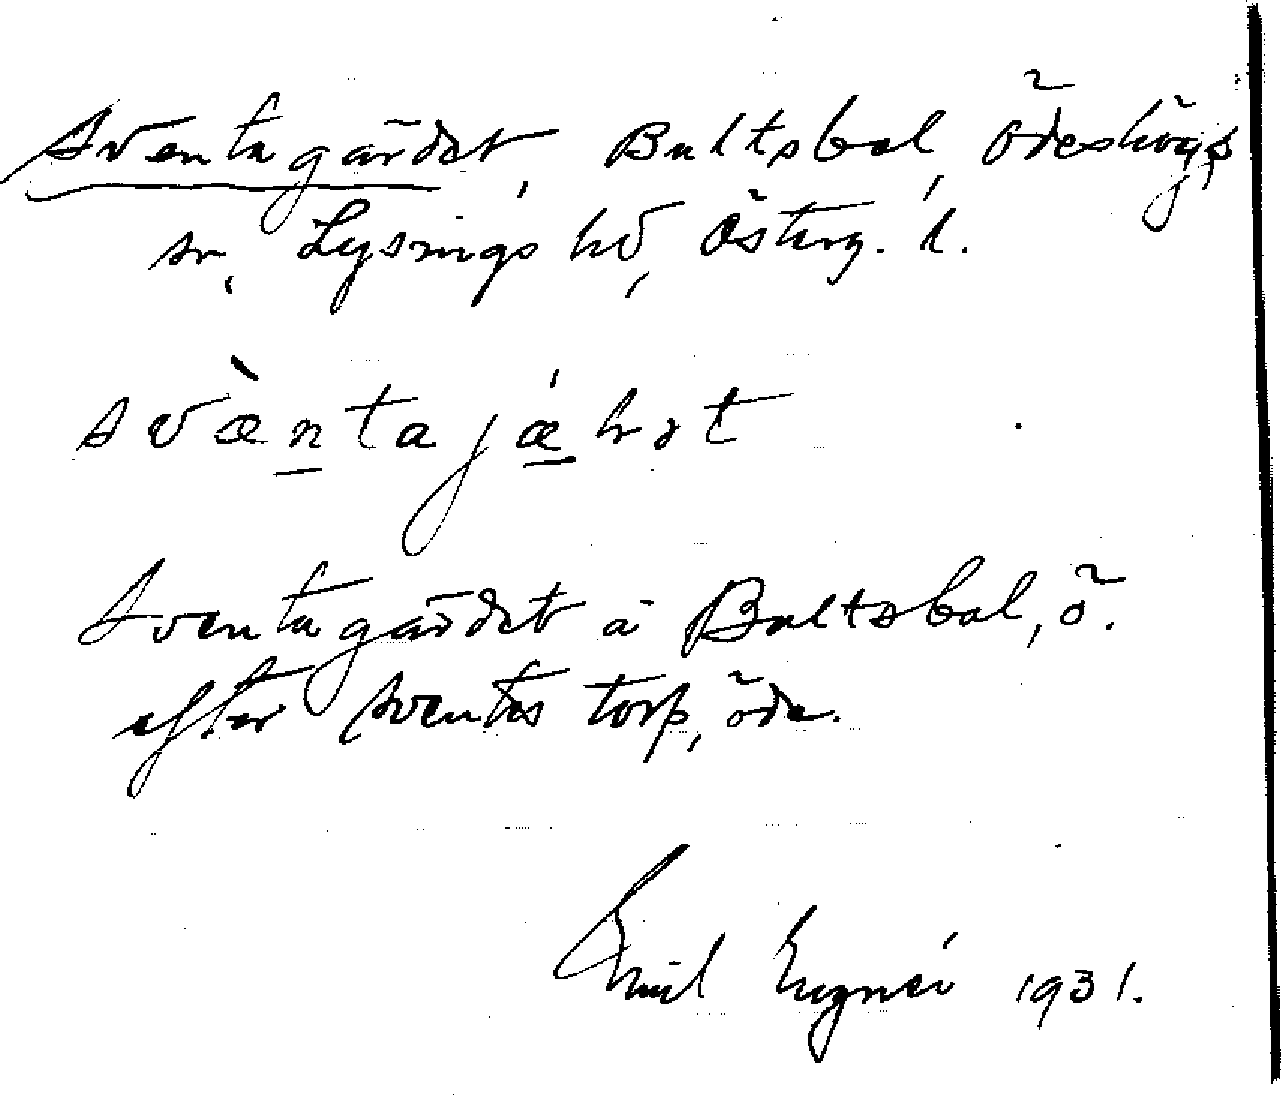 Sventagärdet, Bultsbol, Ödeshögs
sn, Lysings hd, Österg. l.
svæ̀ntajǽhət
Sventagärdet å Bultsbol, ö.
efter Sventes torp, öde.
Emil 1931.